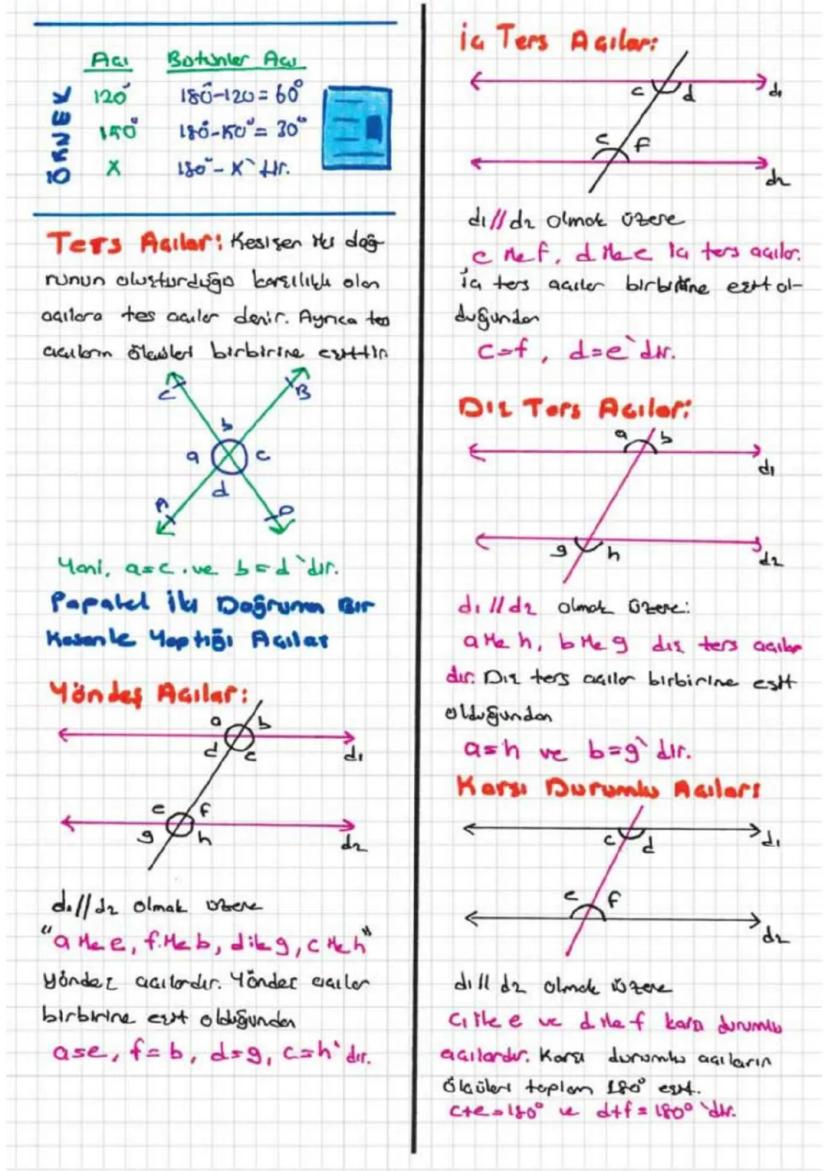 ÖRNEK
Açı Bütünler Açı
120° 180°-120=60°
150° 180°-150°=30°
X 180°-X`tir.
Ters Açılar: Kesişen iki doğ-
runun oluşturduğu karşılıklı olan
açılara tes açılar denir. Ayrıca ters
açıların ölçüleri birbirine eşittir.
C B
b
a c
d
A D
Yani, a=c.ve b=d`dir.
Paralel İki Doğrunun Bir
Kesenle Yaptığı Açılar
Yöndeş Açılar:
a b
d c d1
e f
g h d2
d1//d2 olmak üzere
"a ile e, f ile b, d ile g, c ile h"
yöndeş açılardır. Yöndeş açılar
birbirine eşit olduğundan
a=e, f=b, d=g, c=h`dir.
İç Ters Açılar:
c d d1
e f
d2
d1//d2 olmak üzere
c ile f, d ile e iç ters açılar.
iç ters açılar birbirine eşit ol-
duğundan
c=f, d=e`dir.
Dış Ters Açılar:
a b
d1
g h d2
d1//d2 olmak üzere:
a ile h, b ile g dış ters açılar
dır. Dış ters açılar birbirine eşit
olduğundan
a=h ve b=g`dir.
Karşı Durumlu Açılar:
c d d1
e f
d2
d1//d2 olmak üzere
c ile e ve d ile f karşı durumlu
açılardır. Karşı durumlu açıların
ölçüleri toplam 180° eşit.
c+e=180° ve d+f=180°`dir.